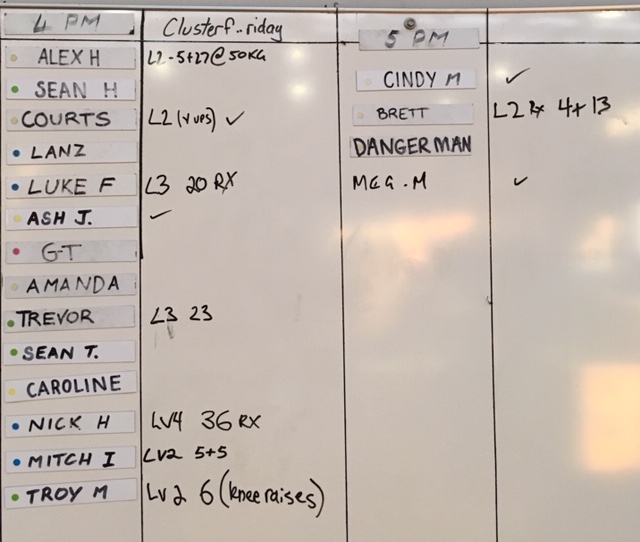 4 PM Clusterf..riday
ALEX H L2-5+27@50KG
SEAN H
COURTS L2 (v ups) ✓
LANZ
LUKE F L3 20 RX
ASH J. ✓
G-T
AMANDA
TREVOR L3 23
SEAN T.
CAROLINE
NICK H LV4 36 RX
MITCH I LV2 5+5
TROY M LV2 6 (knee raises)
5 PM
CINDY M ✓
BRETT L2 Rx 4+13
DANGERMAN
MEG.M ✓